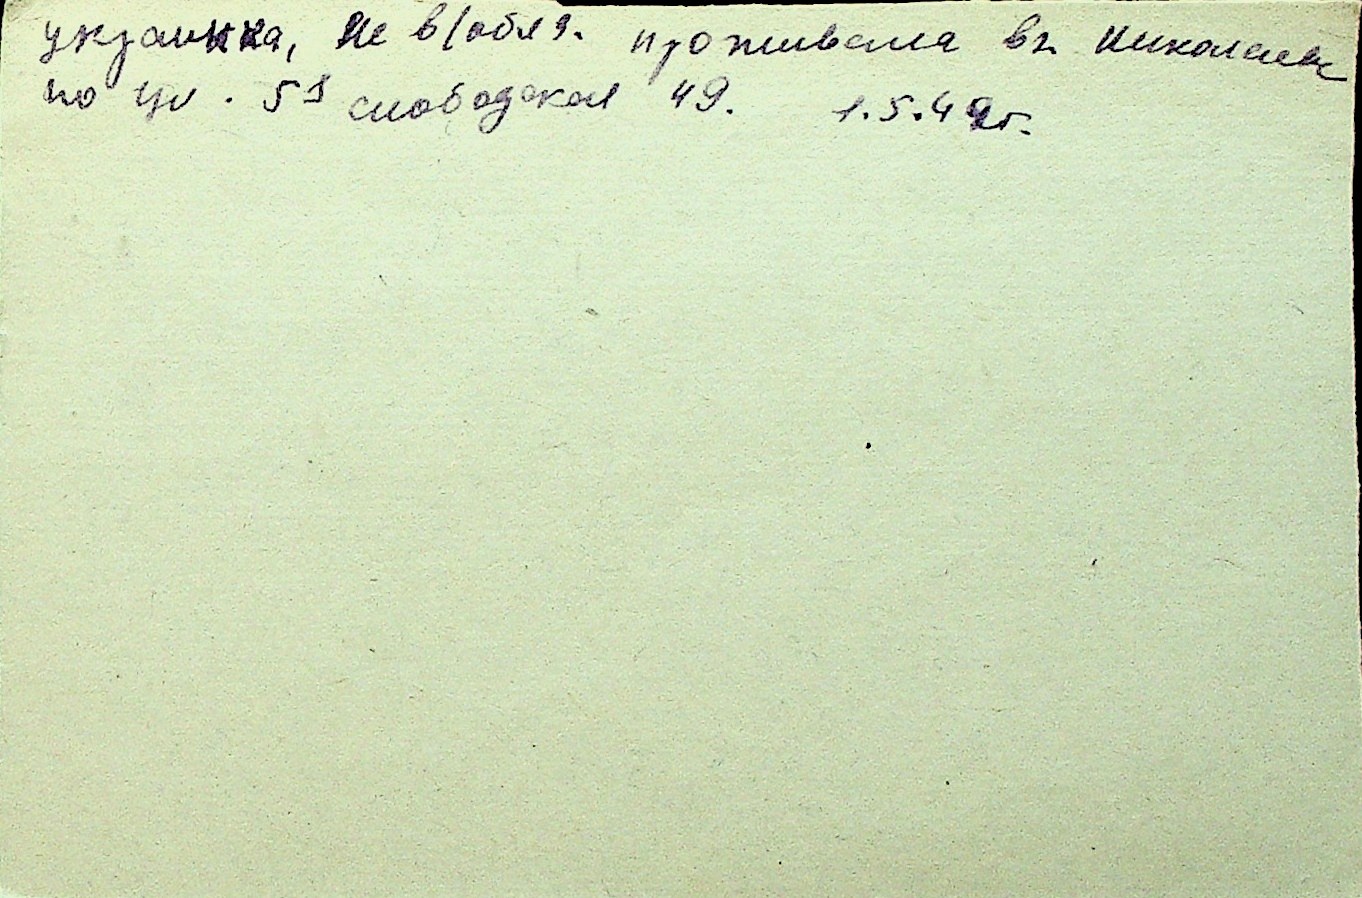 украинка, не в/обяз. проживала в г. Николаеве
по ул. 5я слободская 49. 1.5.49г.